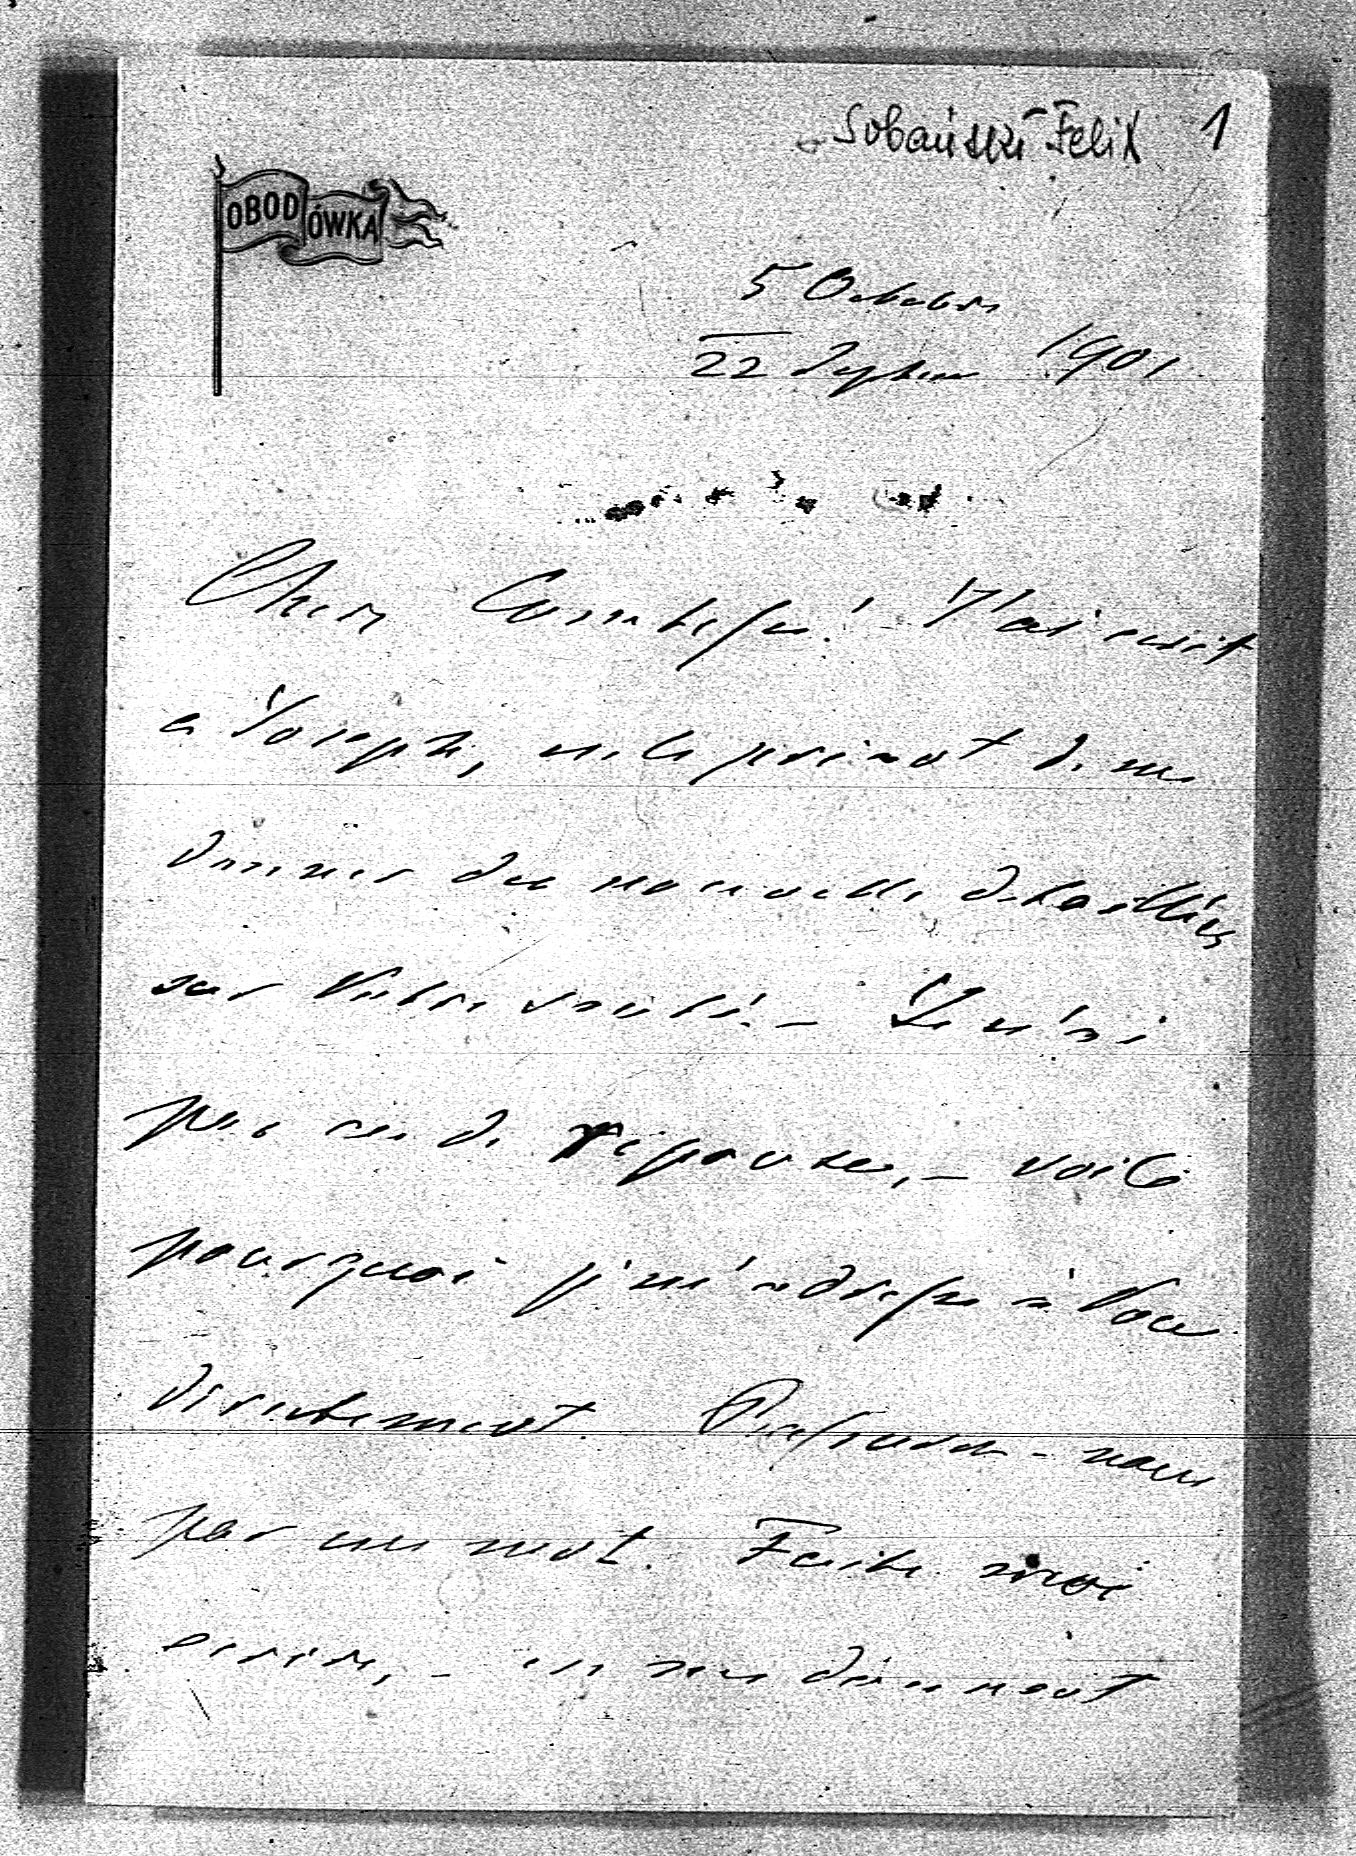 Sobański Felix 1
OBODÓWKA
5 Octobre
22 Septem 1901
Chere Comtesse! J'ai ecrit
a Joseph, en le priant de me
donner des nouvelles detaillées
sur Votre santé. – Je n'ai
pas eu de reponse, – voilà
pourquoi j'm'adresse à Vous
directement. Rassurez-nous
par un mot. Faite moi
ecrire, – en me donnant